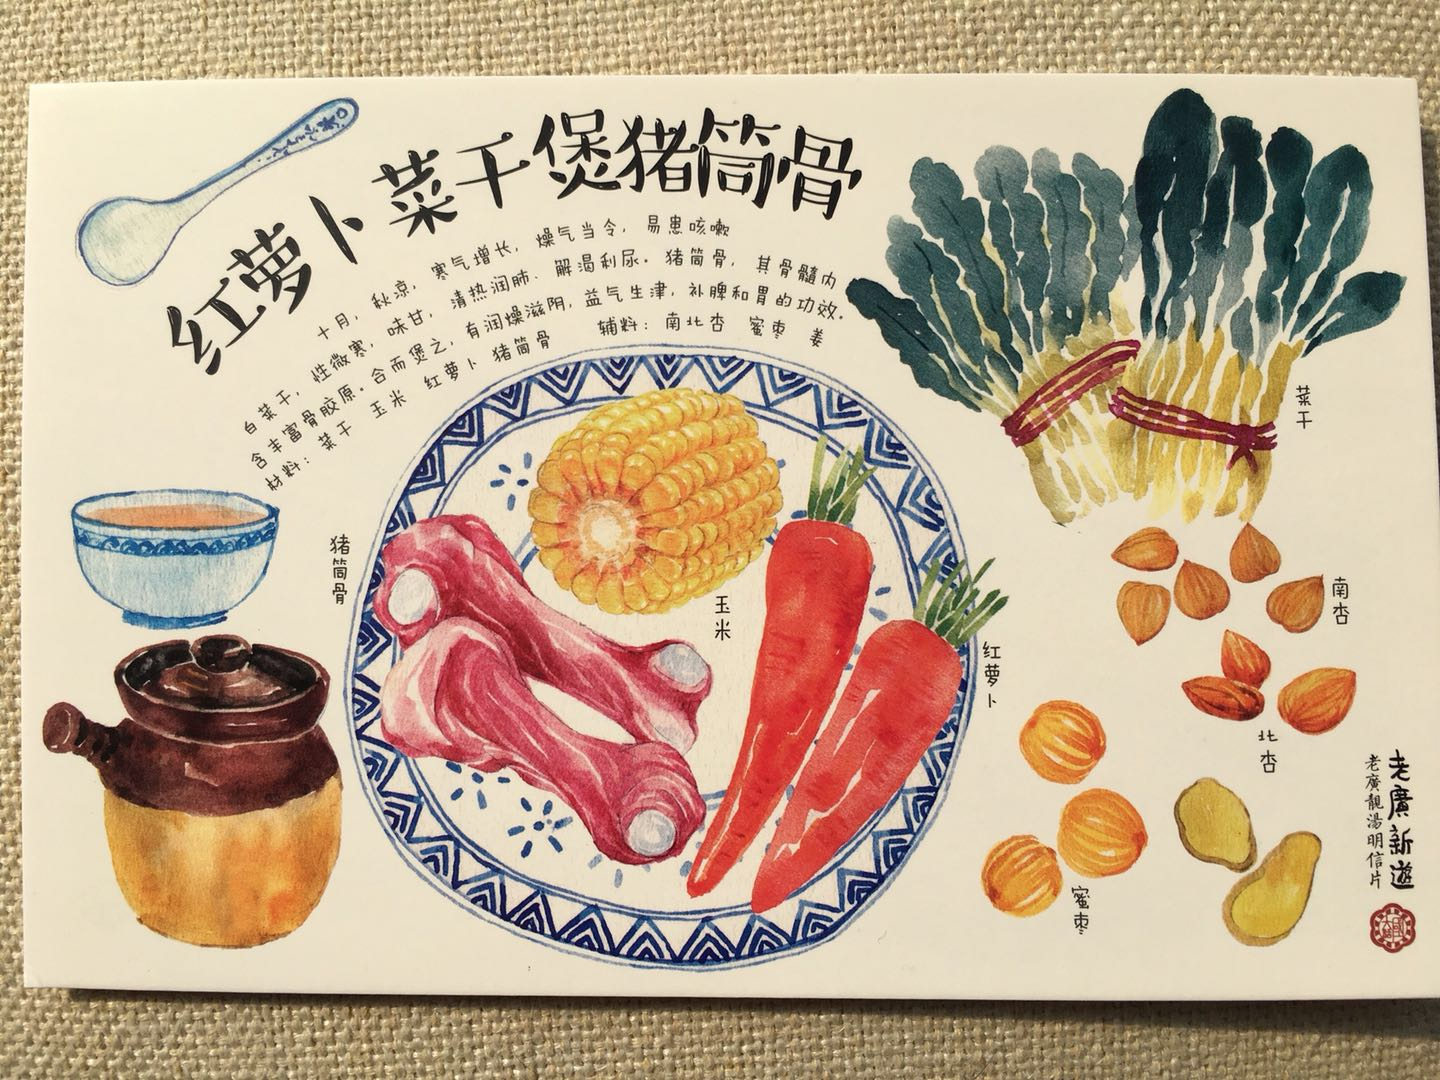 红萝卜菜干煲猪筒骨
十月，秋凉，寒气增长，燥气当令，易患咳嗽
白菜干，性微寒，味甘，清热润肺、解渴利尿。猪筒骨，其骨髓内
含丰富骨胶原。合而煲之，有润燥滋阴，益气生津，补脾和胃的功效。
材料：菜干 玉米 红萝卜 猪筒骨 辅料：南北杏 蜜枣 姜
菜干
猪筒骨
玉米
红萝卜
南杏
北杏
蜜枣
老廣新遊
老廣靚湯明信片